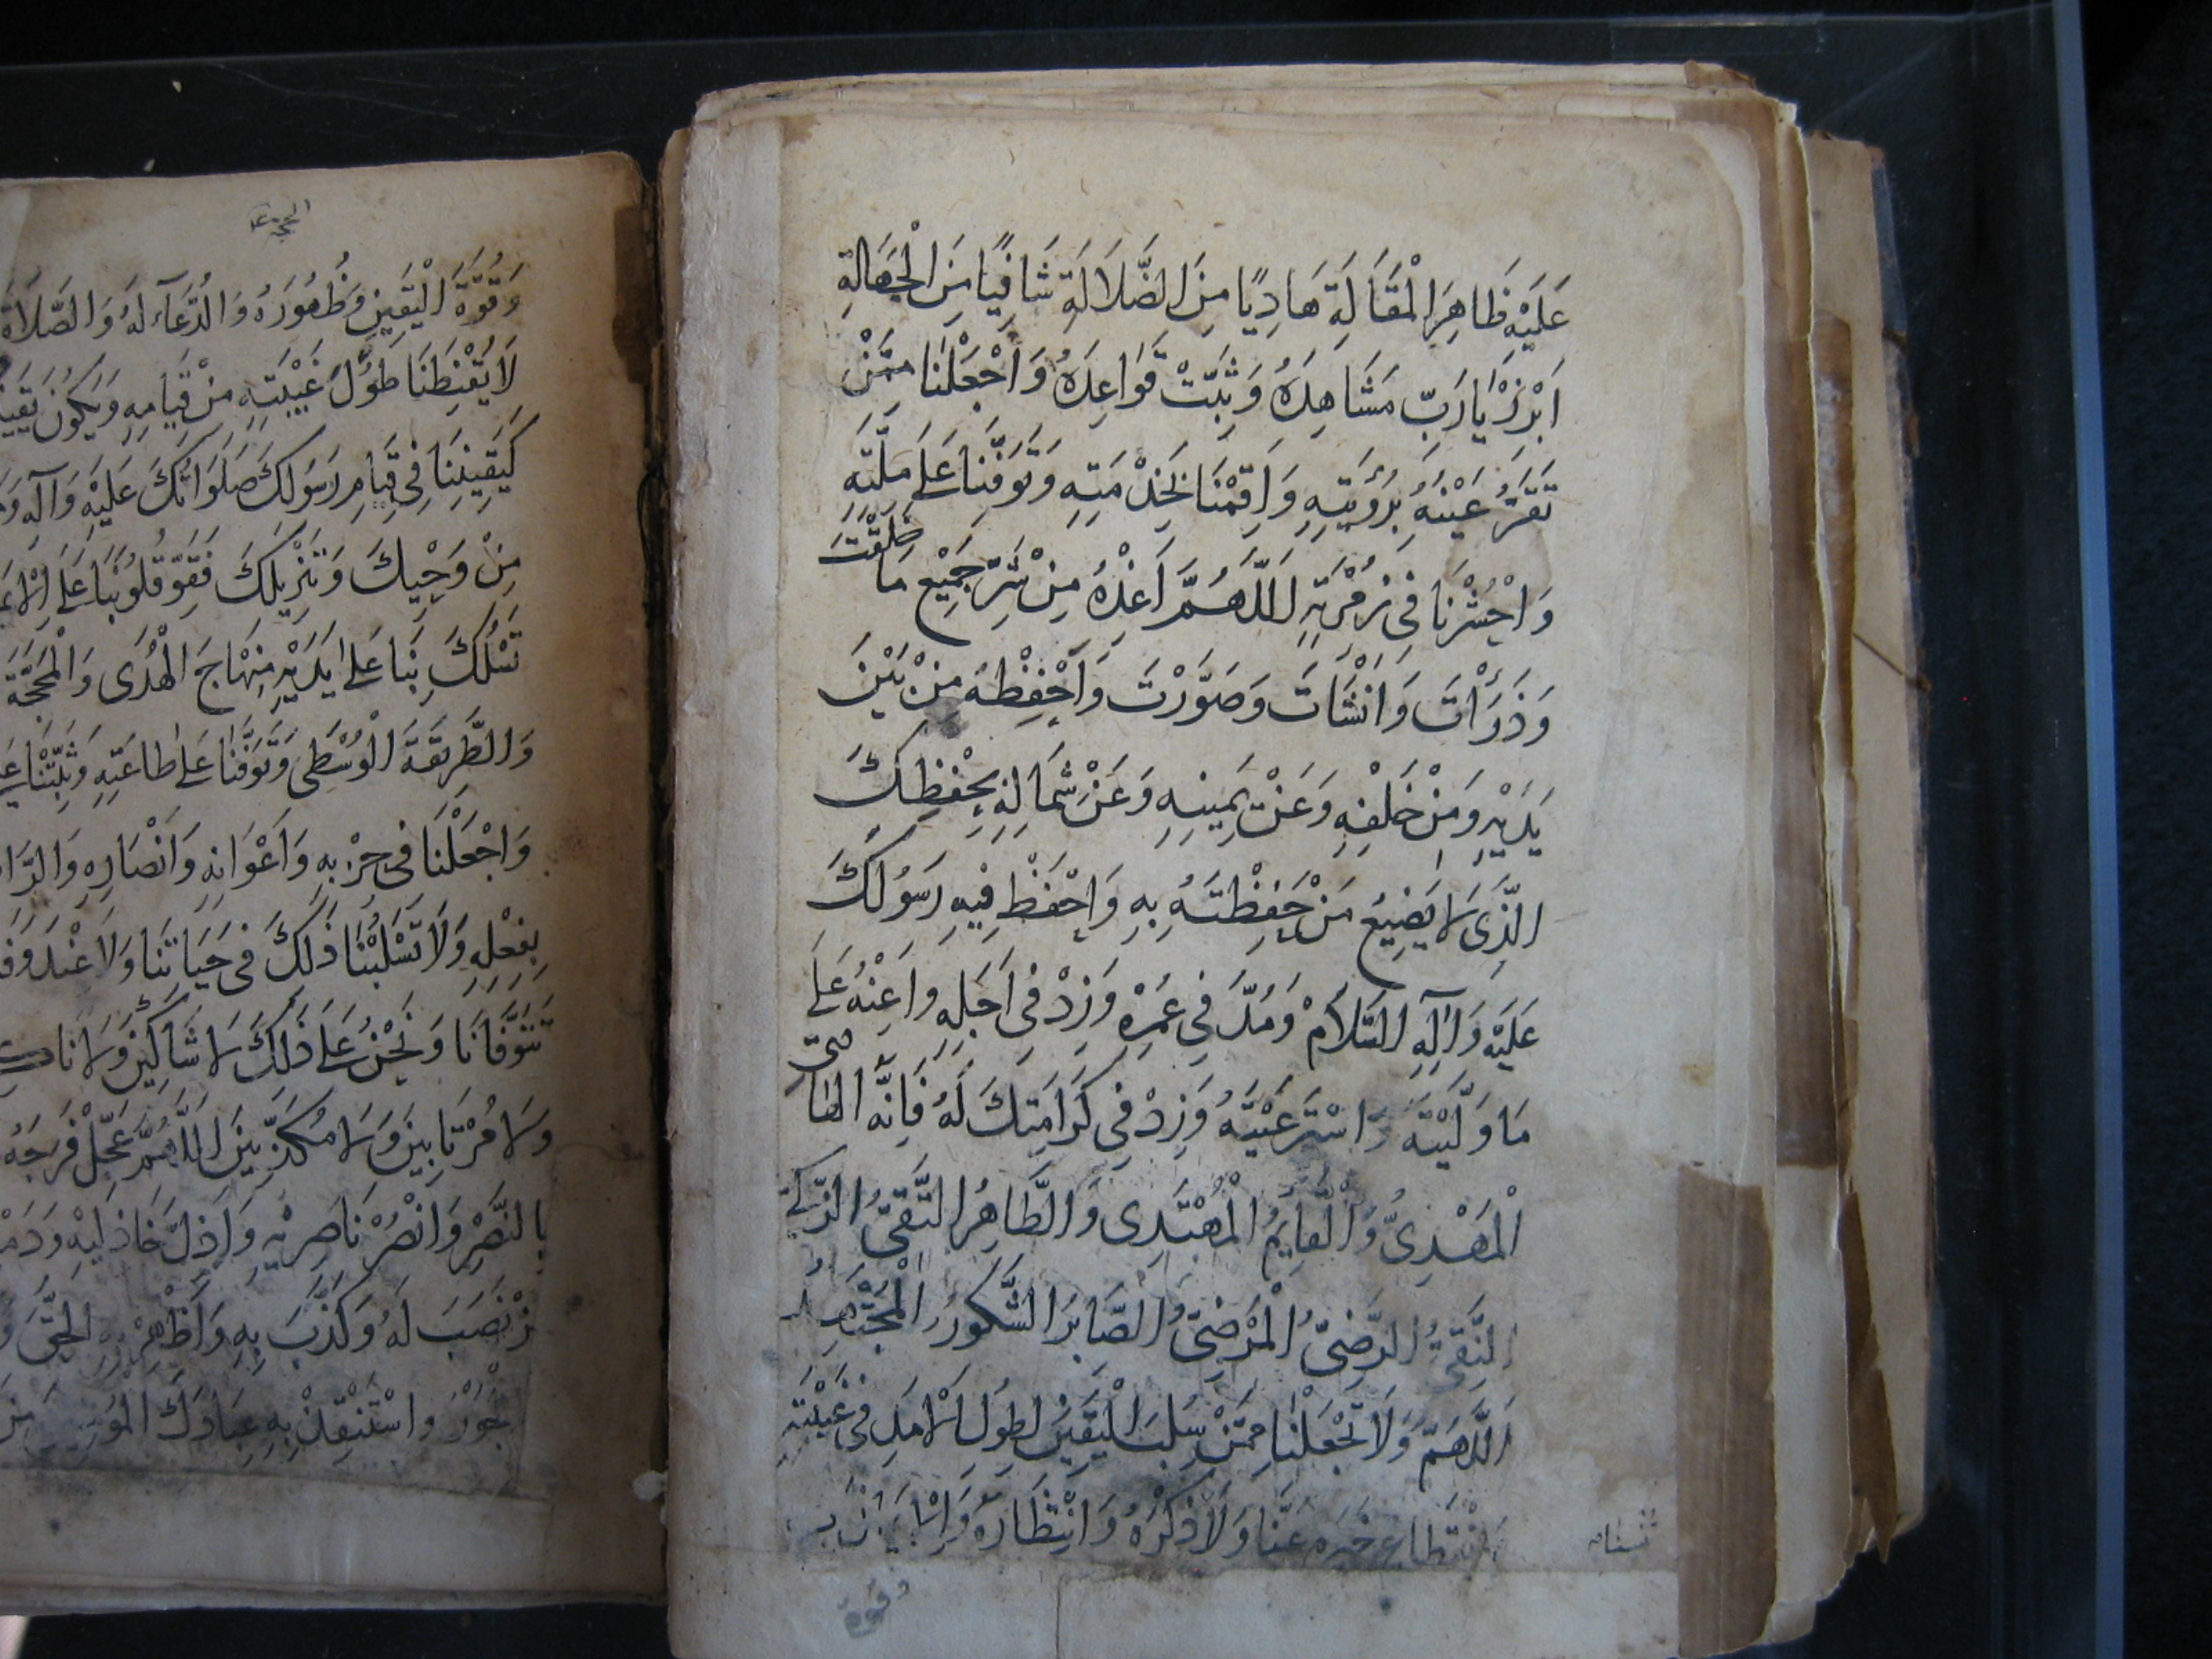 عَلَيْهِ ظَاهِرَ الْمَقَالَةِ هَادِيًا مِنَ الضَّلَالَةِ شَافِيًا مِنَ الْجَهَالَةِ
اَبْرِزْ يَا رَبِّ مَشَاهِدَهُ وَثَبِّتْ قَوَاعِدَهُ وَاجْعَلْنَا مِمَّنْ
تَقَرُّ عَيْنُهُ بِرُؤْيَتِهِ وَاَقِمْنَا بِخِدْمَتِهِ وَتَوَفَّنَا عَلَى مِلَّتِهِ
وَاحْشُرْنَا فِى زُمْرَتِهِ اَللّٰهُمَّ اَعِذْهُ مِنْ شَرِّ جَمِيْعِ مَا خَلَقْتَ
وَذَرَأْتَ وَاَنْشَأْتَ وَصَوَّرْتَ وَاحْفَظْهُ مِنْ بَيْنِ
يَدَيْهِ وَمِنْ خَلْفِهِ وَعَنْ يَمِينِهِ وَعَنْ شِمَالِهِ بِحِفْظِكَ
الَّذِى لَا يَضِيْعُ مَنْ حَفِظْتَهُ بِهِ وَاحْفَظْ فِيْهِ رَسُوْلَكَ
عَلَيْهِ وَآلِهِ السَّلَامْ وَمُدَّ فِى عُمْرِهِ وَزِدْ فِى اَجَلِهِ وَاَعِنْهُ عَلَى
مَا وَلَّيْتَهُ وَاسْتَرْعَيْتَهُ وَزِدْ فِى كَرَامَتِكَ لَهُ فَاِنَّهُ الْهَادِى
الْمَهْدِىُّ وَالْقَايِمُ الْمُهْتَدِى وَالطَّاهِرُ التَّقِىُّ الزَّكِىُّ
النَّقِىُّ الرَّضِىُّ الْمَرْضِىُّ الصَّابِرُ الشَّكُورُ الْمُجْتَهِدُ
اَللّٰهُمَّ وَلَا تَجْعَلْنَا مِمَّنْ سُلِبَ الْيَقِيْنَ لِطُولِ الْاَمَدِ فِى غَيْبَتِهِ
وَانْقِطَاعِ خَبَرِهِ عَنَّا وَلَا ذِكْرَهُ وَانْتِظَارَهُ وَالْاِيمَانَ بِهِ
وقوة
الحجة ع
وَقُوَّةَ الْيَقِينِ وَظُهُورَهُ وَالدُّعَآءَ لَهُ وَالصَّلَاةَ
لَا يُقْنِطَنَا طُولُ غَيْبَتِهِ مِنْ قِيَامِهِ وَيَكُونُ
كَيَقِينِنَا فِى قِيَامِ رَسُولِكَ صَلَوَاتُكَ عَلَيْهِ وَآلِهِ
مِنْ وَحْيِكَ وَتَنْزِيلِكَ فَقَوِّ قُلُوبَنَا عَلَى
تَسْلُكَ بِنَا عَلَى يَدَيْهِ مِنْهَاجَ الْهُدَى وَالْمَحَجَّةَ
وَالطَّرِيقَةَ الْوُسْطَى وَتَوَفَّنَا عَلَى طَاعَتِهِ وَثَبِّتْنَا
وَاجْعَلْنَا فِى حِزْبِهِ وَاَعْوَانِهِ وَاَنْصَارِهِ
بِفِعْلِهِ وَلَا تَسْلُبْنَا ذٰلِكَ فِى حَيَاتِنَا وَلَا عِنْدَ
تَتَوَفَّانَا وَنَحْنُ عَلَى ذٰلِكَ لَا شَاكِّيْنَ وَلَا
وَلَا مُرْتَابِينَ وَلَا مُكَذِّبِينَ اَللّٰهُمَّ عَجِّلْ فَرَجَهُ
بِالنَّصْرِ وَانْصُرْ نَاصِرِيْهِ وَاخْذُلْ خَاذِلِيْهِ
نَصَبَ لَهُ وَكَذَّبَ بِهِ وَاَظْهِرْ بِهِ الْحَقَّ
وَاسْتَنْقِذْ بِهِ عِبَادَكَ